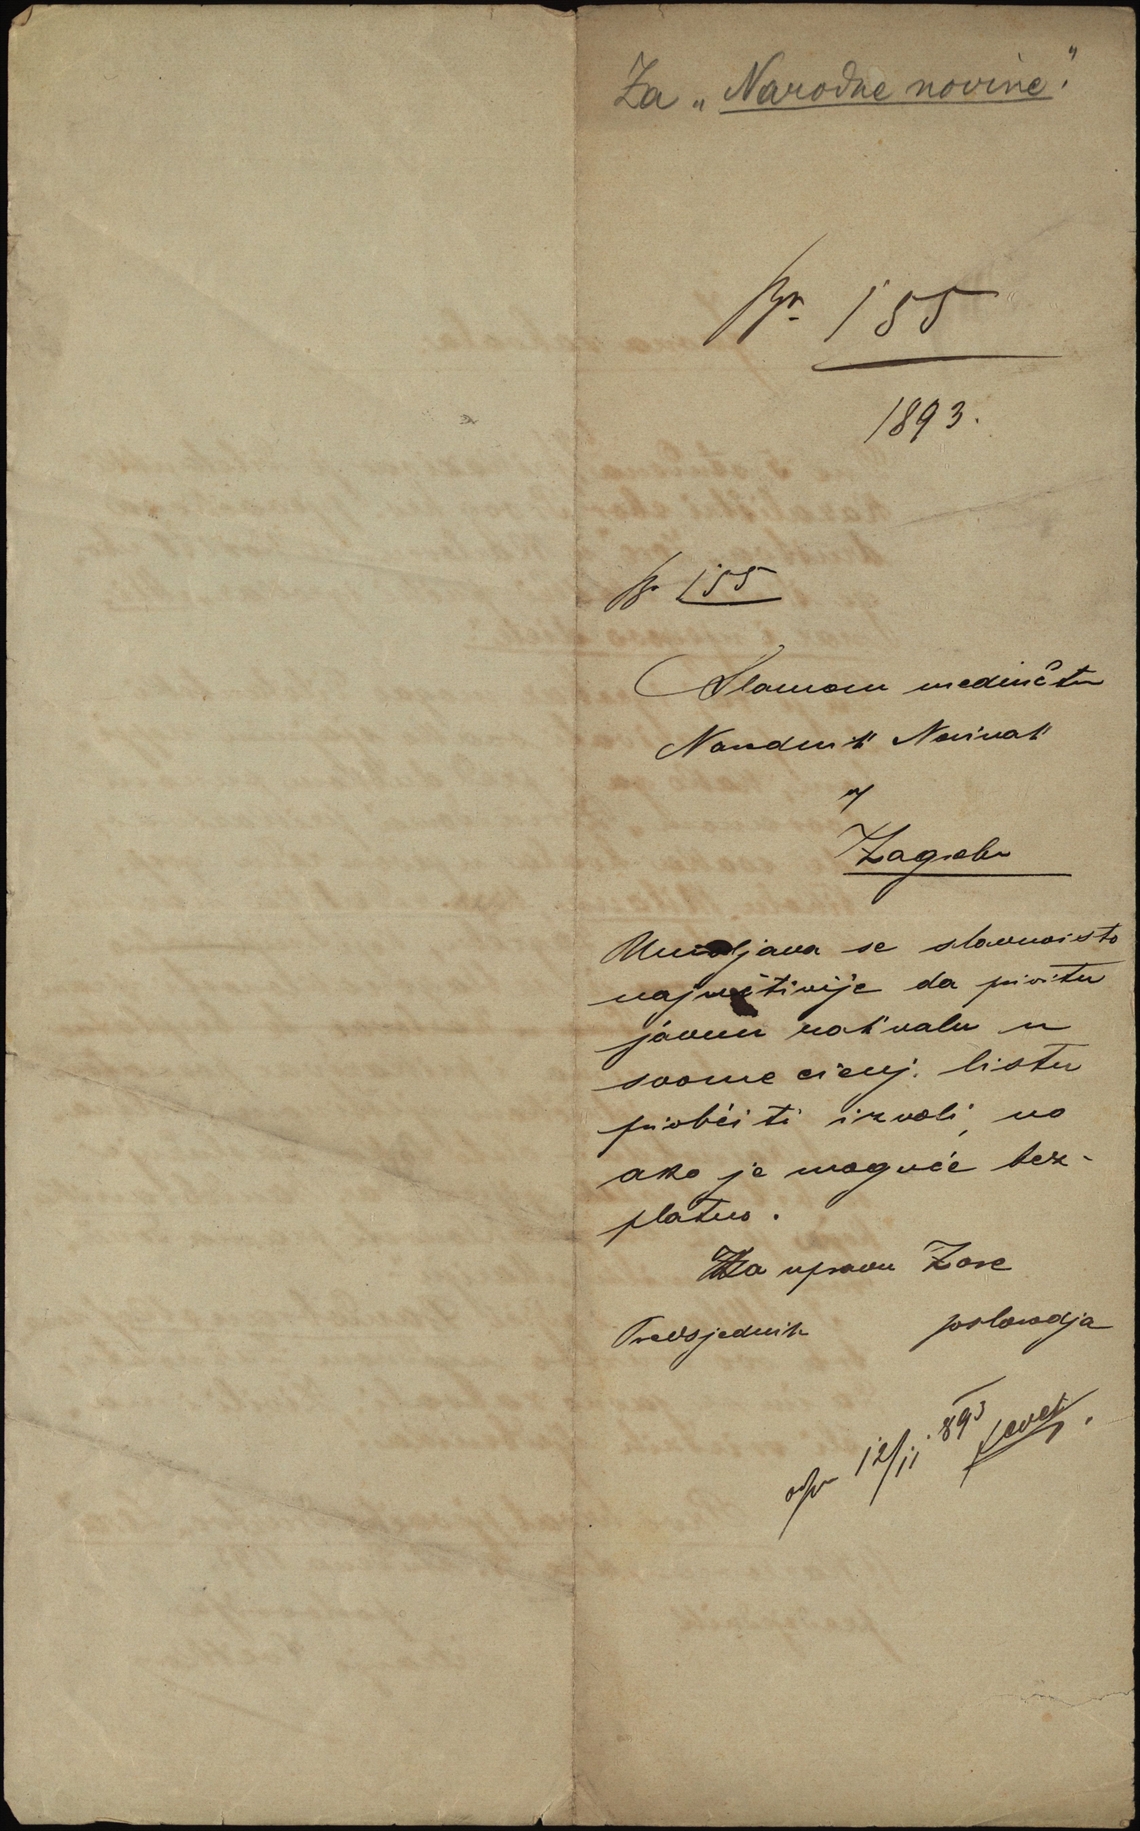 Za „Narodne novine".
pr. 155
1893.
pr 155
Slavnom uredničtvu
Narodnih Novinah
u
Zagrebu
Umoljava se slavnoisto
najučtivije da privitu
javnu zahvalu u
svome cienj. listu
priobćiti izvoli, no
ako je moguće bez-
platno.
Za upravu Zore
Predsjednik poslovodja
odpr 12/11 893